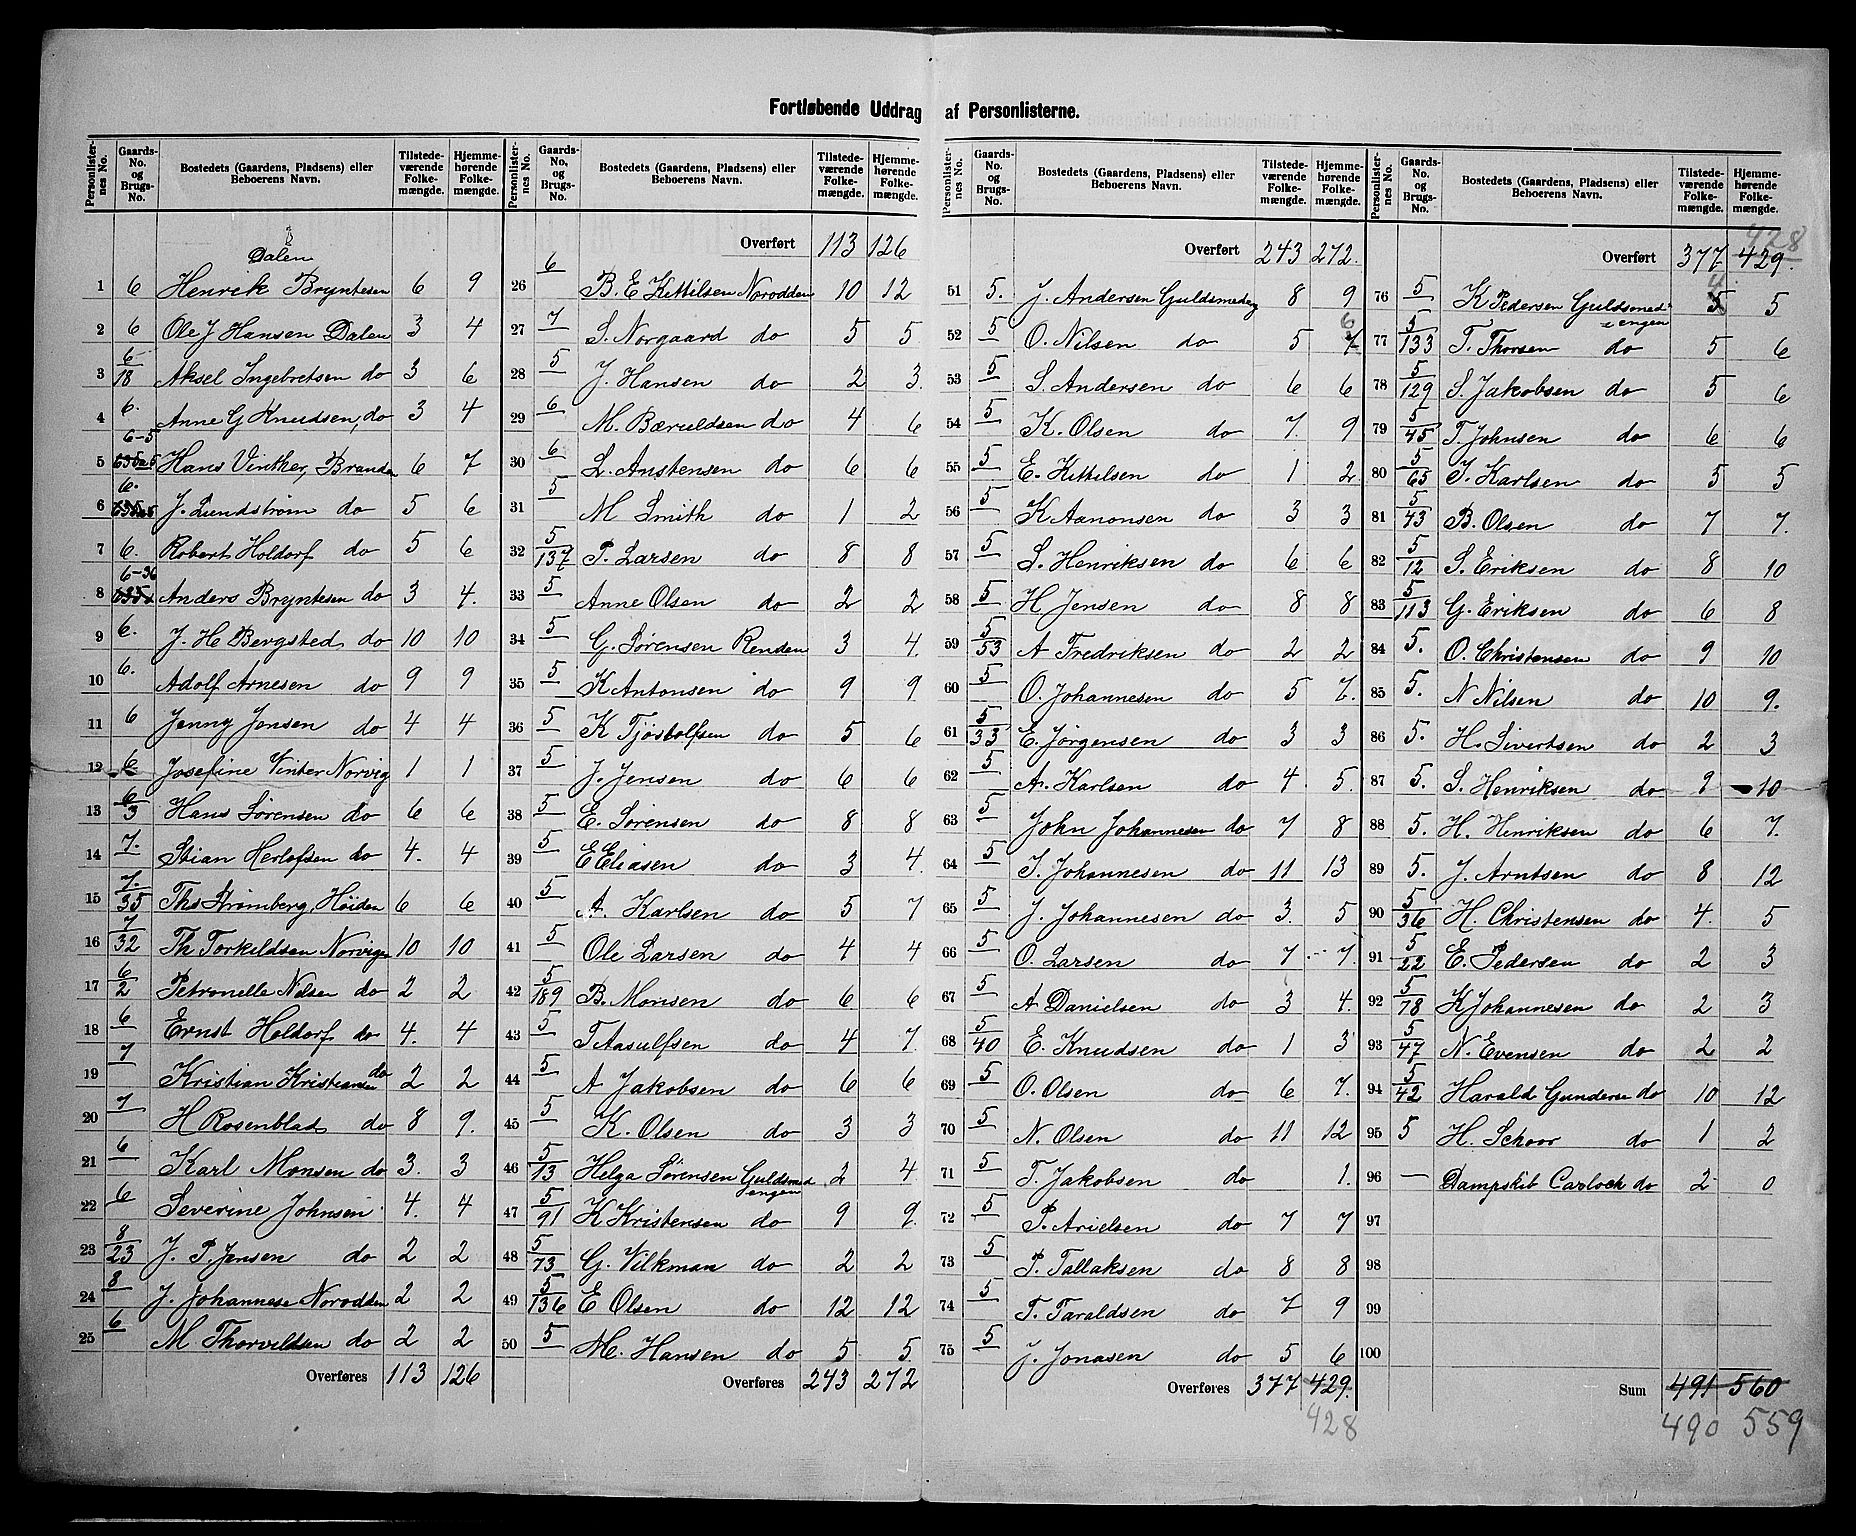 Fortløbende Uddrag af Personlisterne.
Personlister-nes No. | Gaards-No. og Brugs-No. | Bostedets (Gaardens, Pladsens) eller Beboerens Navn. | Tilstede-værende Folke-mængde. | Hjemme-hørende Folke-mængde.
Dalen
1 | 6 | Henrik Bryntesen | 6 | 9
2 | 6 | Ole J Hansen Dalen | 3 | 4
3 | 6/18 | Aksel Ingebretsen do | 3 | 6
4 | 6. | Anne G Knudsen, do | 3 | 4
5 | 6-5 | Hans Vinther, Branden | 6 | 7
6 | 6. | J. Lundstrøm do | 5 | 6
7 | 6. | Robert Holdorf do | 5 | 6
8 | 6-36 | Anders Bryntesen do | 3 | 4.
9 | 6. | J. H Bergsted do | 10 | 10
10 | 6. | Adolf Arnesen do | 9 | 9
11 | 6 | Jenny Jensen do | 4 | 4
12 | 6 | Josefine Vinter Norvig | 1 | 1
13 | 6/3 | Hans Sørensen do | 6 | 6
14 | 7. | Stian Herlofsen do | 4. | 4
15 | 7./35 | Ths Strømberg, Höiden | 6 | 6
16 | 7/32 | Th Torkildsen Norvigen | 10 | 10
17 | 6/2 | Petronelle Nilsen do | 2 | 2
18 | 6 | Ernst Holdorf do | 4. | 4
19 | 7 | Kristian Kristiansen do | 2 | 2
20 | 7 | H Rosenblad do | 8 | 9.
21 | 6 | Karl Monsen do | 3. | 3
22 | 6 | Severine Johnsen | 4. | 4
23 | 8/23 | J. P. Jensen do | 2 | 2
24 | 8 | J. Johannese Norodden | 2 | 2
25 | 6 | M Thorvildsen do | 2 | 2
Overføres | 113 | 126
Personlister-nes No. | Gaards-No, og Brugs-No. | Bostedets (Gaardens, Pladsens) eller Beboerens Navn. | Tilstede-værende Folke-mængde. | Hjemme-hørende Folke-mængde.
Overført | 113 | 126
26 | 6 | B. E Kittilsen Norodden | 10 | 12
27 | 7 | S. Norgaard do | 5 | 5
28 | 5 | J. Hansen do | 2 | 3.
29 | 6 | M. Bæruldsen do | 4 | 6
30 | 6 | L. Anstensen do | 6 | 6
31 | 5 | M Smith do | 1 | 2
32 | 5/137 | P. Larsen do | 8 | 8
33 | 5 | Anne Olsen do | 2 | 2
34 | 5 | G. Sørensen Renden | 3 | 4.
35 | 5 | K Antonsen do | 9 | 9
36 | 5 | K Tjøstolfsen do | 5 | 6
37 | 5 | J. Jensen do | 6 | 6
38 | 5 | E. Sørensen do | 8 | 8
39 | 5 | E Eliasen do | 3 | 4.
40 | 5 | A. Karlsen do | 5 | 7
41 | 5 | Ole Larsen do | 4 | 4
42 | 5/189 | B. Monsen do | 6 | 6
43 | 5 | T Aasulfsen do | 4 | 7.
44 | 5 | A Jakobsen do | 6 | 6
45 | 5 | K. Olsen do | 3 | 3
46 | 5/13 | Helga Sørensen Guldsmedengen | 2 | 4.
47 | 5/91 | K Kristensen do | 9 | 9.
48 | 5/73 | G. Vilkman do | 2 | 2
49 | 5/136 | E Olsen do | 12 | 12
50 | 5 | M. Hansen do | 5 | 5
Overføres | 243 | 272
Personlister-nes No. | Gaards-No. og Brugs-No. | Bostedets (Gaardens, Pladsens) eller Beboerens Navn. | Tilstede-værende Folke-mængde. | Hjemme-hørende Folke-mængde.
Overført | 243 | 272.
51 | 5. | J. Andersen Guldsmedeng | 8 | 9
52 | 5 | O. Nilsen do | 5 | 7 6
53 | 5 | S. Andersen do | 6 | 6
54 | 5 | K. Olsen do | 7. | 9
55 | 5 | E. Kittilsen do | 1 | 2
56 | 5 | K Aanonsen do | 3 | 3
57 | 5 | S. Henriksen do | 6 | 6
58 | 5 | H Jensen do | 8 | 8
59 | 5/53 | A Fredriksen do | 2 | 2
60 | 5 | O. Johannesen do | 5 | 7.
61 | 5/33 | E. Jørgensen do | 3 | 3
62 | 5 | A. Karlsen do | 4. | 5.
63 | 5 | John Johannesen do | 7 | 8
64 | 5 | S. Johannesen do | 11 | 13
65 | 5 | J. Johannesen do | 3. | 5
66 | 5 | O. Larsen do | 7 | 7.
67 | 5 | A Danielsen do | 3 | 4.
68 | 5/40 | E. Knudsen do | 1 | 3
69 | 5 | O. Olsen do | 6 | 7.
70 | 5 | N. Olsen do | 11 | 12
71 | 5 | T. Jakobsen do | | 1.
72 | 5 | P. Arielsen do | 7 | 7
73 | 5 | P. Tallaksen do | 8 | 8
74 | 5 | T. Taraldsen do | 7 | 9
75 | 5 | J. Jonasen do | 5 | 6
Overføres | 377 | 429.
428
Personlister-nes No. | Gaards-No. og Brugs-No. | Bostedets (Gaardens, Pladsens) eller Beboerens Navn. | Tilstede-værende Folke-mængde. | Hjemme-hørende Folke-mængde.
428
Overført | 377 | 429.
76 | 5 | K Pedersen Guldsmedengen | 5 4 | 5
77 | 5/133 | T. Thorsen do | 5 | 6
78 | 5/129 | S. Jakobsen do | 5 | 6
79 | 5/45 | T. Johnsen do | 6 | 6
80 | 5/65 | I. Karlsen do | 5 | 5
81 | 5/43 | B. Olsen do | 7 | 7.
82 | 5/12 | S. Eriksen do | 8 | 10
83 | 5/113 | G. Eriksen do | 6 | 8
84 | 5. | O. Christensen do | 9 | 10
85 | 5. | N. Nilsen do | 10 | 9.
86 | 5. | H. Sivertsen do | 2 | 3
87 | 5. | S. Henriksen do | 9 | 10
88 | 5. | H. Henriksen do | 6 | 7.
89 | 5. | J. Arntsen do | 8 | 12
90 | 5/36 | H. Christensen do | 4. | 5
91 | 5/22 | E. Pedersen do | 2 | 3
92 | 5/78 | K Johannesen do | 2 | 3
93 | 5/47 | N. Evensen do | 2 | 2
94 | 5/42 | Harald Gunderse do | 10 | 12
95 | 5 | H. Schoor do | 1 | 2
96 | — | Dampskib Carloch do | 2 | 0
97
98
99
100
Sum | 491 | 560
490 559